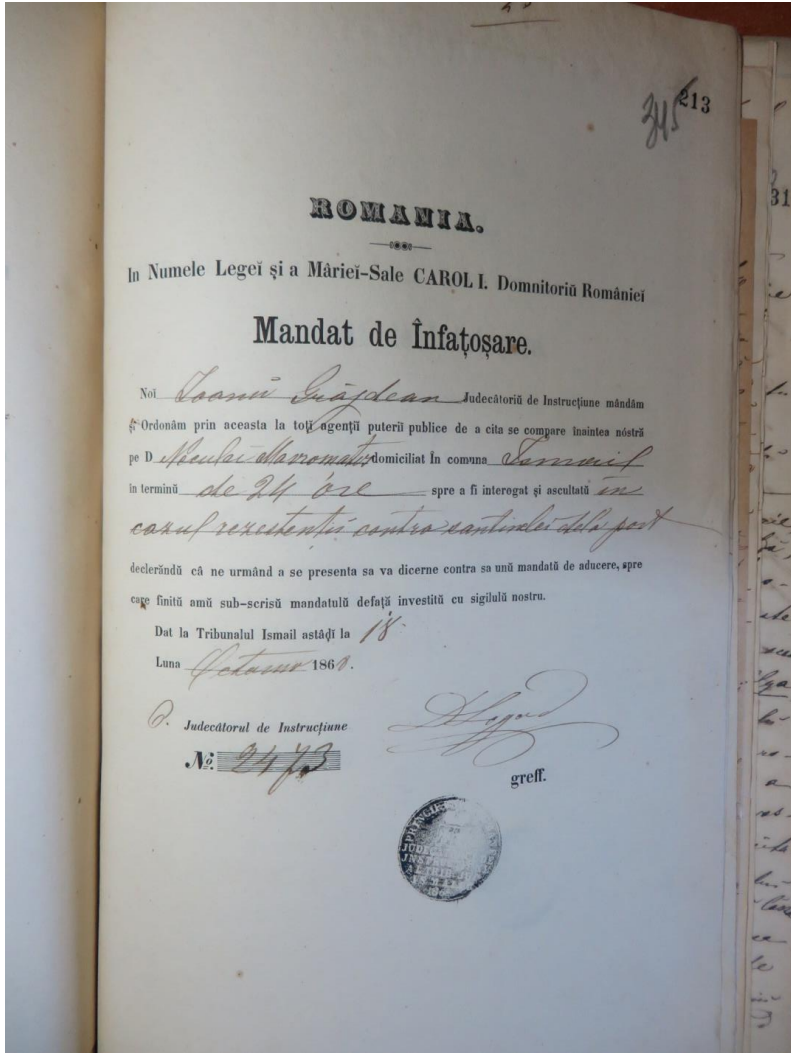 345 213
ROMANIA.
In Numele Legeĭ și a Mârieĭ-Sale CAROL I. Domnitoriŭ Româniеĭ
Mandat de Înfațoșare.
Noĭ Ioanŭ Grăjdean Judecătoriŭ de Instrucțiune mândăm
și Ordonăm prin aceasta la toțĭ agențiĭ puteriĭ publice de a cita se compare înaintea nóstră
pe D Neculai Mavromati domiciliat În comuna Ismail
in terminŭ de 24 óre spre a fi interogat și ascultatŭ in
cazul rezestentii contra santinelei dela port
declerăndŭ că ne urmând a se presenta sa va dicerne contra sa unŭ mandatŭ de aducere, spre
care finitŭ amŭ sub-scrisŭ mandatulŭ defață investitŭ cu sigilulŭ nostru.
Dat la Tribunalul Ismail astăḑĭ la 18
Luna 186
Judecătorul de Instrucțiune
No. 2473
greff.